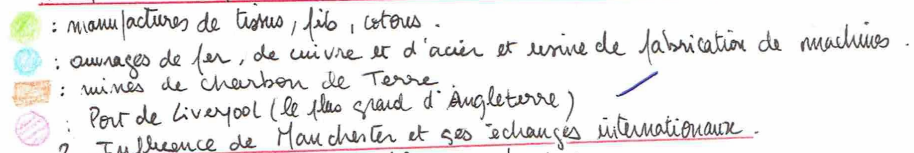 : manufactures de tissus, fils, cotons.
: ouvrages de fer, de cuivre et d'acier et usine de fabrication de machines.
: mines de charbon de Terre
: Port de Liverpool (le plus grand d'Angleterre)
2. Influence de Manchester et ses échanges internationaux.